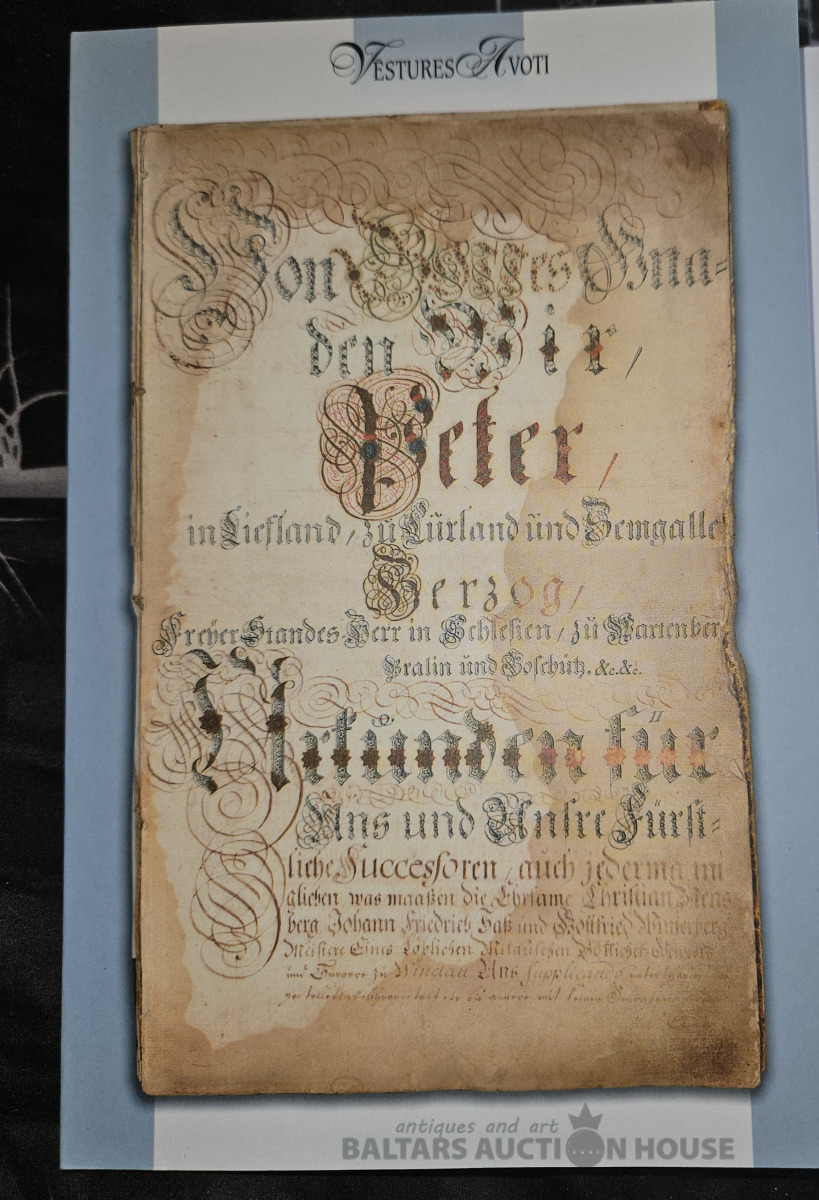 VĒSTURES AVOTI
Von Gottes Gna-
den Wir,
Peter,
in Liefland, zu Curland und Semgalle
Herzog,
Freyer Standes Herr in Schlesien, zu Wartenber
Bralin und Goschütz. &c. &c.
Urkunden für
Uns und Unsre Fürst-
liche Successoren, auch jederma
glichen, was maaßen die Ehrsame Christian
berg Johann Friedrich Saß und Gottfried Winterberg
Meistere Eines Löblichen Mitauschen
und zu Windau Uns supplicando
antiques and art
BALTARS AUCTION HOUSE